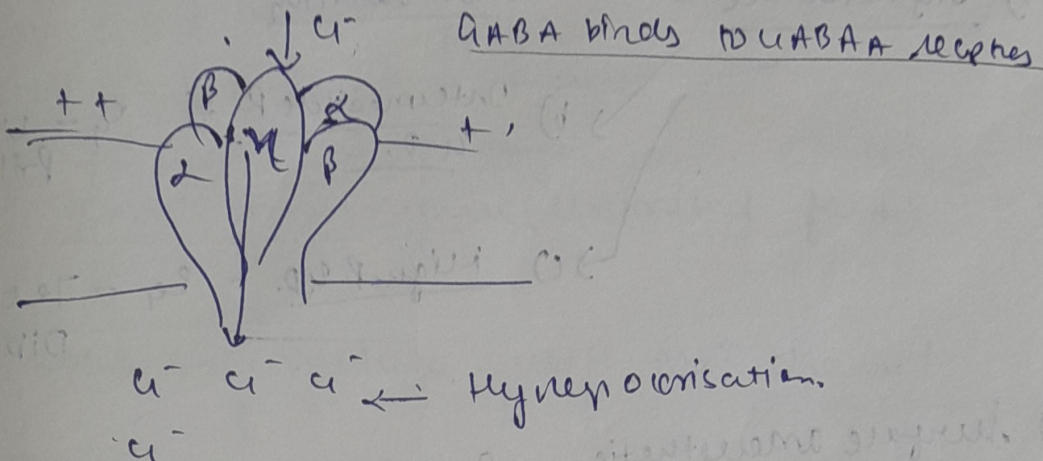 GABA binds to GABAA receptres
↓ Cl⁻
β
α
+ +
+
α
γ
β
Cl⁻ Cl⁻ Cl⁻ ← Hyperpolarisation.
Cl⁻